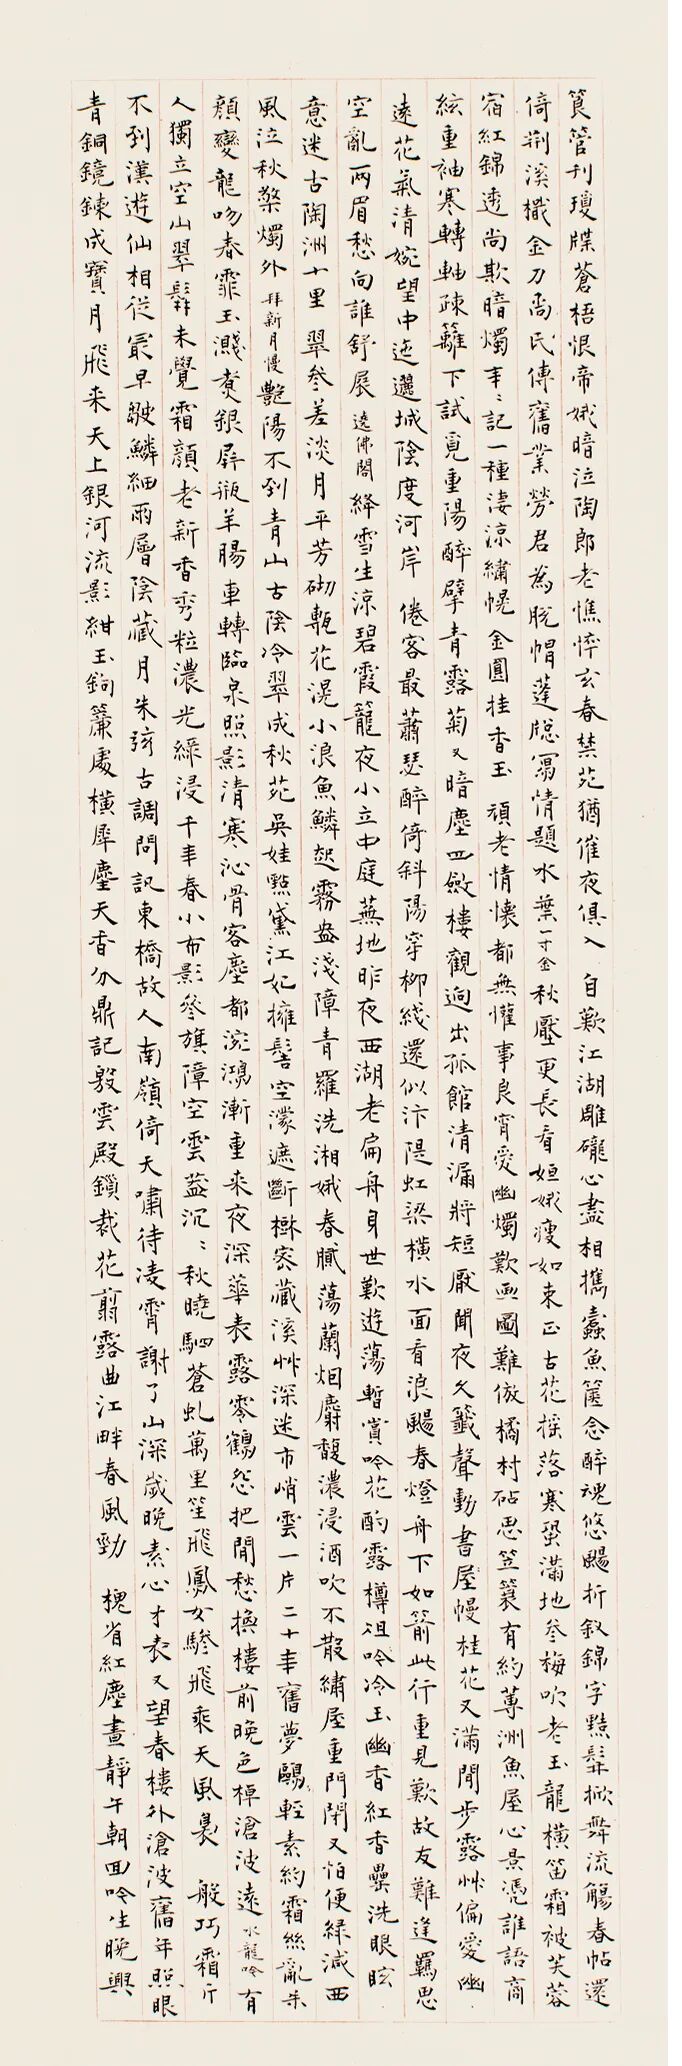 筤管刊瓊牒蒼梧恨帝娥暗泣陶郎老憔悴玄春禁苑猶催夜俱入 自歎江湖雕礲心盡相攜蠹魚篋念醉魂悠颺折釵錦字黠髯掀舞流觴春帖還
倚荊溪檝金刀尚氏傳舊業勞君為脫帽蓬牕寓情題水葉 一寸金 秋壓更長看姮娥瘦如束正古花搖落寒蛩滿地參梅吹老玉龍橫笛霜被芙蓉
宿紅錦透尚欺暗燭年〻記一種淒涼繡幌金圓挂香玉 頑老情懷都無懽事良宵愛幽燭歎畫圖難倣橘村砧思笠蓑有約蓴洲魚屋心景憑誰語商
絃重袖寒轉軸疎籬下試覓重陽醉擘青露菊 又暗塵四斂樓觀迥出孤館清漏將短厭聞夜久籤聲動書屋幔桂花又滿閒步露艸偏愛幽
遠花氣清婉望中迤邐城陰度河岸 倦客最蕭瑟醉倚斜陽穿柳綫還似汴隄虹梁橫水面看浪颺春燈舟下如箭此行重見歎故友難逢羈思
空亂兩眉愁向誰舒展 遶佛閣 絳雪生涼碧霞籠夜小立中庭蕪地昨夜西湖老扁舟身世歎遊蕩暫賞吟花酌露樽俎吟冷玉幽香紅香罍洗眼眩
意迷古陶洲十里 翠參差淡月平芳砌甎花滉小浪魚鱗起霧盎淺障青羅洗湘娥春膩蕩蘭烟麝馥濃浸酒吹不散繡屋重門閉又怕便綠減西
風泣秋檠燭外 拜新月慢 艷陽不到青山古陰冷翠成秋苑吳娃點黛江妃擁髻空濛遮斷樹密藏溪艸深迷市峭雲一片二十年舊夢鷗輕素約霜絲亂朱
顏變龍吻春霏玉濺煮銀屏瓶羊腸車轉臨泉照影清寒沁骨客塵都浣鴻漸重來夜深華表露零鶴怨把閒愁換樓前晚色棹滄波遠 水龍吟 有
人獨立空山翠髯未覺霜顏老新香秀粒濃光綠浸千年春小布影參旗障空雲蓋沉〻秋曉駟蒼虬萬里笙飛鳳女驂飛乘天風裊 般巧霜斤
不到漢遊仙相從最早皴鱗細雨層陰藏月朱弦古調問訊東橋故人南嶺倚天嘯待凌霄謝了山深歲晚素心才表 又望春樓外滄波舊年照眼
青銅鏡鍊成寶月飛來天上銀河流影紺玉鉤簾處橫犀麈天香分鼎記殷雲殿鎖裁花翦露曲江畔春風勁 槐省紅塵晝靜午朝回吟生晚興